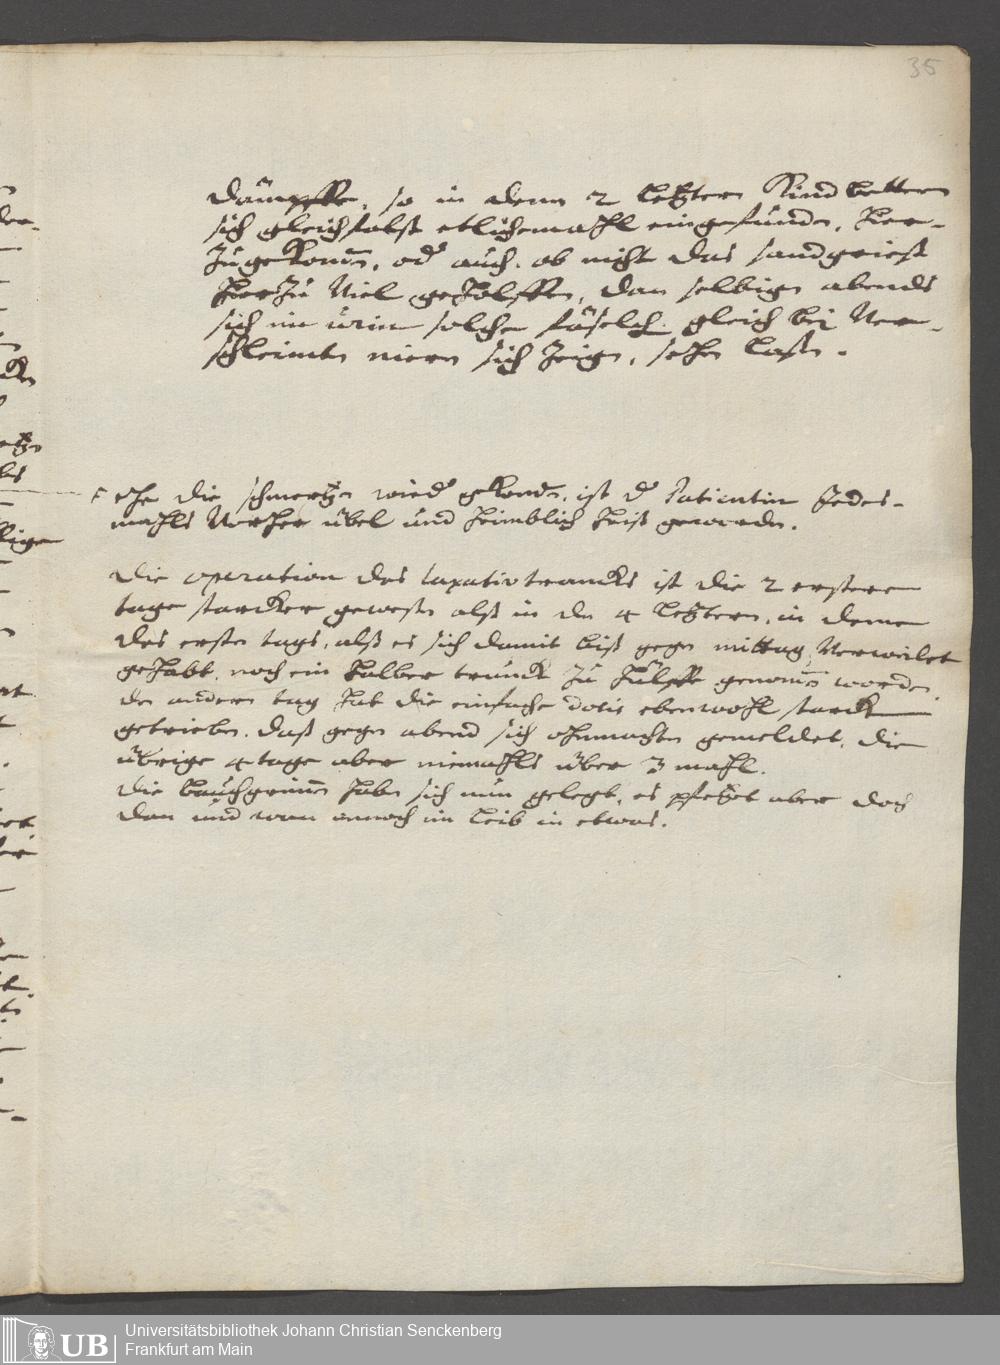 35
dämpffe, so in denn 2 letztern Kindbettern
sich gleichfalß etlichemahl eingefunden, hier-
zu gekom̄en, od auch. ob nicht das sandgrieß
hierzu viel geholffen, dan selbiges abends
sich im urin solcher gleich bei ver-
schleimten niern sich zeigen, sehen laßen.
ehe die schmertzen wied gekom̄en, ist d Patientin Jedes-
mahls vorher übel und heimblich heiß geworden.
Die operation des laxativtrancks ist die 2 erstere
tage starcker gewesen alß in den 4 letztern, in denen
des ersten tags, alß es sich damit biß gegen mittag verweilet
gehabt, noch ein halber trunck zu hülffe genom̄en worden.
den andern tag hat die einfache dosis ebenwohl starck
getrieben. daß gegen abend sich ohnmachten gemeldet, die
übrige 4 tage aber niemahls über 3 mahl.
die bauchgrim̄en haben sich nun gelegt, es pfetzet aber doch
dan und wan annoch im leib in etwas.
Universitätsbibliothek Johann Christian Senckenberg
Frankfurt am Main
UB